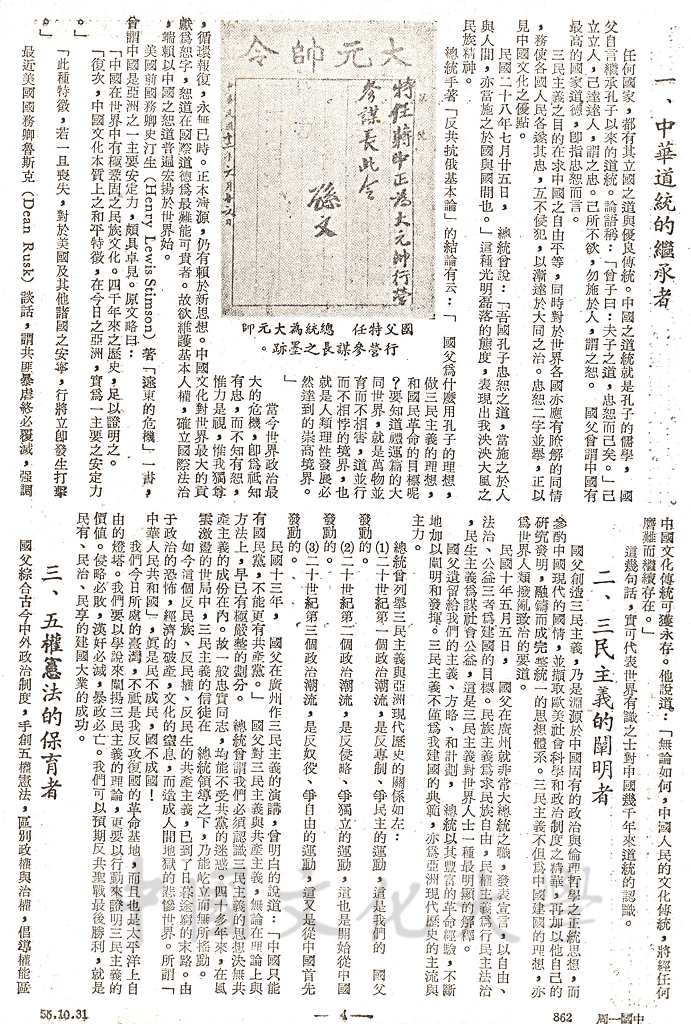 一、中華道統的繼承者
任何國家，都有其立國之道與優良傳統。中國之道統就是孔子的儒學，　國
父自言繼承孔子以來的道統。論語稱：「曾子曰：夫子之道，忠恕而已矣。」己
立立人，己達達人，謂之忠。己所不欲，勿施於人，謂之恕。　國父曾謂中國有
最高的國家道德，即指忠恕而言。
三民主義之目的在求中國之自由平等，同時對於世界各國亦應有瞭解的同情
，務使各國人民各遂其忠，互不侵犯，以漸達於大同之治。忠恕二字並舉，正以
見中國文化之優點。
民國二十八年七月廿五日，　總統曾說：「吾國孔子忠恕之道，當施之於人
與人間，亦當施之於國與國間也。」這種光明磊落的態度，表現出我泱泱大風之
民族精神。
總統手著「反共抗俄基本論」的結論有云：「　國父爲什麼用孔子的理想，
做三民主義的理想，
和國民革命的目標呢
？要知道禮運篇的大
同世界，就是萬物並
育而不相害，道並行
而不相悖的境界，也
就是人類理性發展必
然達到的崇高境界。
」
當今世界政治最
大的危機，即爲祗知
有忠，而不知有恕，
惟力是視，惟我獨尊
大元帥令
特任蔣中正爲大元帥行營
參謀長此令
孫文
國父特任　總統爲大元帥
行營參謀長之墨跡。
，循環報復，永無已時。正本清源，仍有賴於新思想。中國文化對世界最大的貢
獻爲恕字，恕道在國際道德爲最難能可貴者。故欲維護基本人權，確立國際法治
，端賴以中國之恕道普遍宏揚於世界始。
美國前國務卿史汀生（Henry Lewis Stimson）著「遠東的危機」一書，
曾謂中國是亞洲之一主要安定力，頗具卓見。原文略曰：
「中國在世界中有極鞏固之民族文化。四千年來之歷史，足以證明之。
「復次，中國文化本質上之和平特徵，在今日之亞洲，實爲一主要之安定力
。」
「此種特徵，若一旦喪失，對於美國及其他諸國之安寧，行將立即發生打擊
。」
最近美國國務卿魯斯克（Dean Rusk）談話，謂共匪暴虐終必覆滅，强調
中國文化傳統可獲永存。他說道：「無論如何，中國人民的文化傳統，將經任何
磨難而繼續存在。」
這幾句話，實可代表世界有識之士對中國幾千年來道統的認識。
二、三民主義的闡明者
國父創造三民主義，乃是淵源於中國固有的政治與倫理哲學之正統思想，而
參酌中國現代的國情，並擷取歐美社會科學和政治制度之精華，再加以他自己的
研究發明，融鑄而成完整統一的思想體系。三民主義不但爲中國建國的理想，亦
爲世界人類撥亂政治的要道。
民國十年五月五日，　國父在廣州就非常大總統之職，發表宣言，以自由、
法治、公益三者爲建國的目標。民族主義爲求民族自由，民權主義爲行民主法治
，民生主義爲謀社會公益，這是三民主義對世界人士一種最明顯的解釋。
國父遺留給我們的主義、方略、和計劃，　總統以其豐富的革命經驗，不斷
地加以闡明和發揮。三民主義不僅爲我建國的典範，亦爲亞洲現代歷史的主流與
主力。
總統曾列舉三民主義與亞洲現代歷史的關係如左：
⑴二十世紀第一個政治潮流，是反專制、爭民主的運動，這是我們的　國父
發動的。
⑵二十世紀第二個政治潮流，是反侵略、爭獨立的運動，這也是開始從中國
發動的。
⑶二十世紀第三個政治潮流，是反奴役、爭自由的運動，這又是從中國首先
發動的。
民國十三年，　國父在廣州作三民主義的演講，曾明白的說道：「中國只能
有國民黨，不能更有共產黨。」　國父對三民主義與共產主義，無論在理論上與
方法上，早已有極嚴整的劃分。　總統曾謂我們必須認識三民主義的思想決無共
產主義的成份在內。故一般忠貞同志，均能不受共黨的迷惑。四十多年來，在風
雲激盪的世局中，三民主義的信徒在　總統領導之下，乃能屹立而無所搖動。
如今這個反民族、反民權、反民生的共產主義，已到了日暮途窮的末路。由
于政治的恐怖，經濟的破產，文化的窒息，而造成人間地獄的悲慘世界。所謂「
中華人民共和國」，眞是民不成民，國不成國！
我們今日所處的臺灣，不祗是我反攻復國的革命基地，而且也是太平洋上自
由的燈塔。我們要以學說來闡揚三民主義的理論，更要以行動來證明三民主義的
價値。侵略必敗，漢奸必滅，暴政必亡。我們可以預期反共聖戰最後勝利，就是
民有、民治、民享的建國大業的成功。
三、五權憲法的保育者
國父綜合古今中外政治制度，手創五權憲法，區別政權與治權，倡導權能區
中國文化大學
55.10.31
— 4 —
862　周一國中